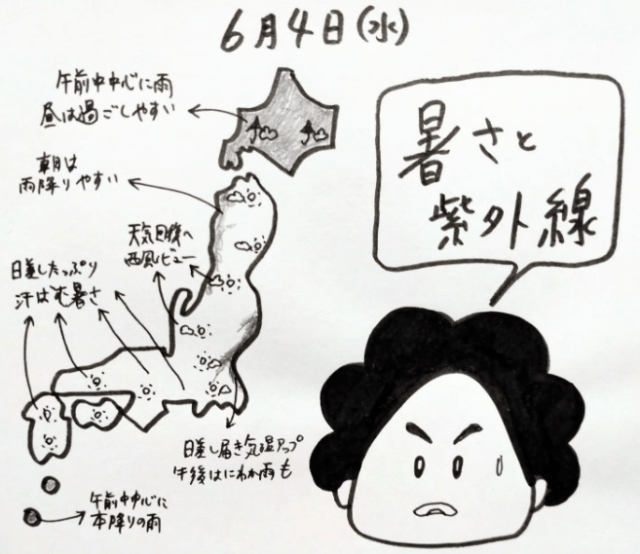 6月4日(水)
午前中中心に雨
昼は過ごしやすい
朝は
雨降りやすい
天気回復へ
西風ビュー
日差したっぷり
汗ばむ暑さ
暑さと
紫外線
日差し届き気温アップ
午後はにわか雨も
午前中中心に
本降りの雨